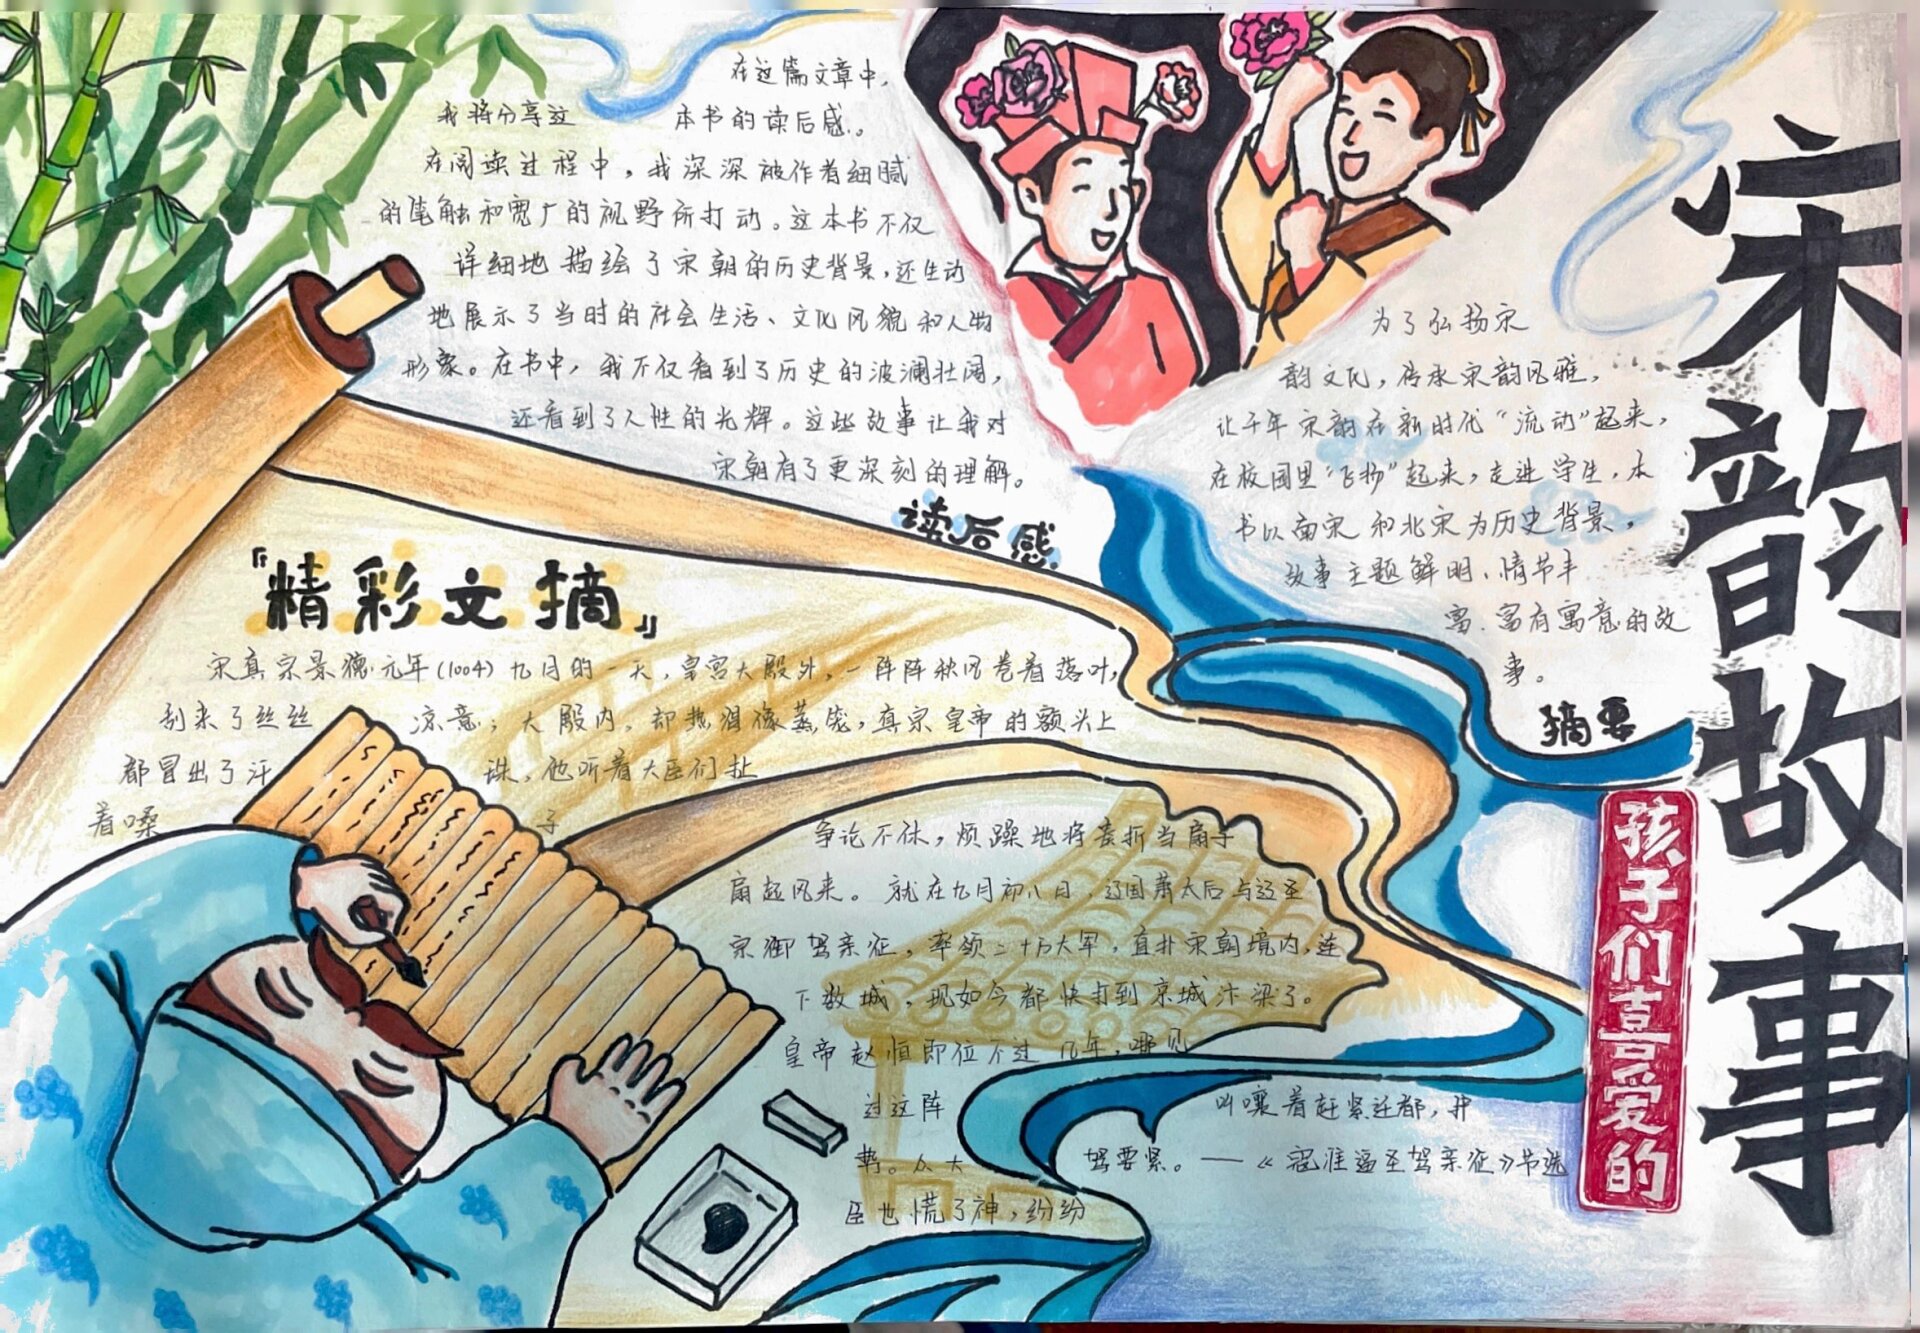 宋韵故事
孩子们喜爱的
在这篇文章中，
我将分享这 本书的读后感。
在阅读过程中，我深深被作者细腻
的笔触和宽广的视野所打动。这本书不仅
详细地描绘了宋朝的历史背景，还生动
地展示了当时的社会生活、文化风貌和人物
形象。在书中，我不仅看到了历史的波澜壮阔，
还看到了人性的光辉。这些故事让我对
宋朝有了更深刻的理解。
读后感
为了弘扬宋
韵文化，传承宋韵风雅，
让千年宋韵在新时代“流动”起来，
在校园里“飞扬”起来，走进学生，本
书以南宋和北宋为历史背景，
故事主题鲜明、情节丰
富、富有寓意的故
事。
摘要
『精彩文摘』
宋真宗景德元年(1004)九月的一天，皇宫大殿外，一阵阵秋风卷着落叶，
刮来了丝丝 凉意；大殿内，却热得像蒸笼，真宗皇帝的额头上
都冒出了汗 珠，他听着大臣们扯
着嗓 子
争论不休，烦躁地将奏折当扇子
扇起风来。就在九月初八日，辽国萧太后与辽圣
宗御驾亲征，率领二十万大军，直扑宋朝境内，连
下数城，现如今都快打到京城汴梁了。
皇帝赵恒即位不过 年，哪见
过这阵
势。众大
臣也慌了神，纷纷
叫嚷着赶紧迁都，护
驾要紧。—《寇准逼圣驾亲征》节选